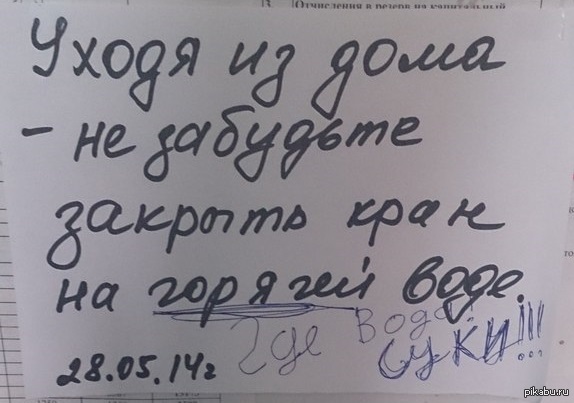 Отчисления в резерв на капитальный
Уходя из дома
- не забудьте
закрыть кран
на горячей воде.
28.05.14г
Где вода
СУКИ!!!
pikabu.ru